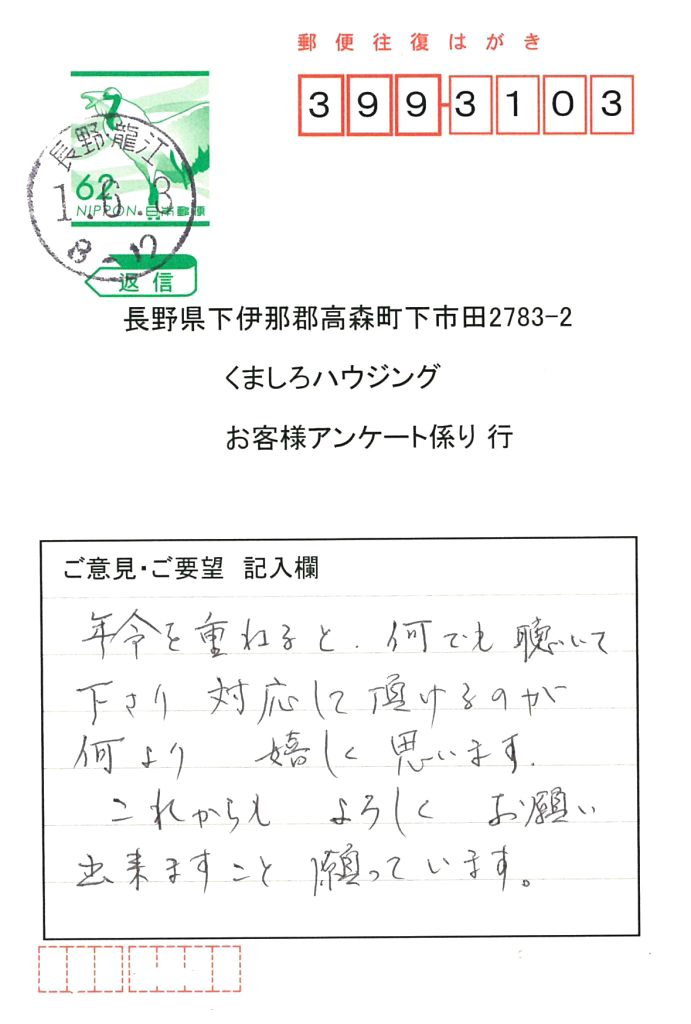 郵便往復はがき
399-3103
長野・龍江
62
1.6.3
NIPPON 日本郵便
8-12
返信
長野県下伊那郡高森町下市田2783-2
くましろハウジング
お客様アンケート係り 行
ご意見・ご要望 記入欄
年令を重ねると、何でも聴いて
下さり 対応して頂けるのが
何より 嬉しく思います。
これからも よろしく お願い
出来ますこと 願っています。